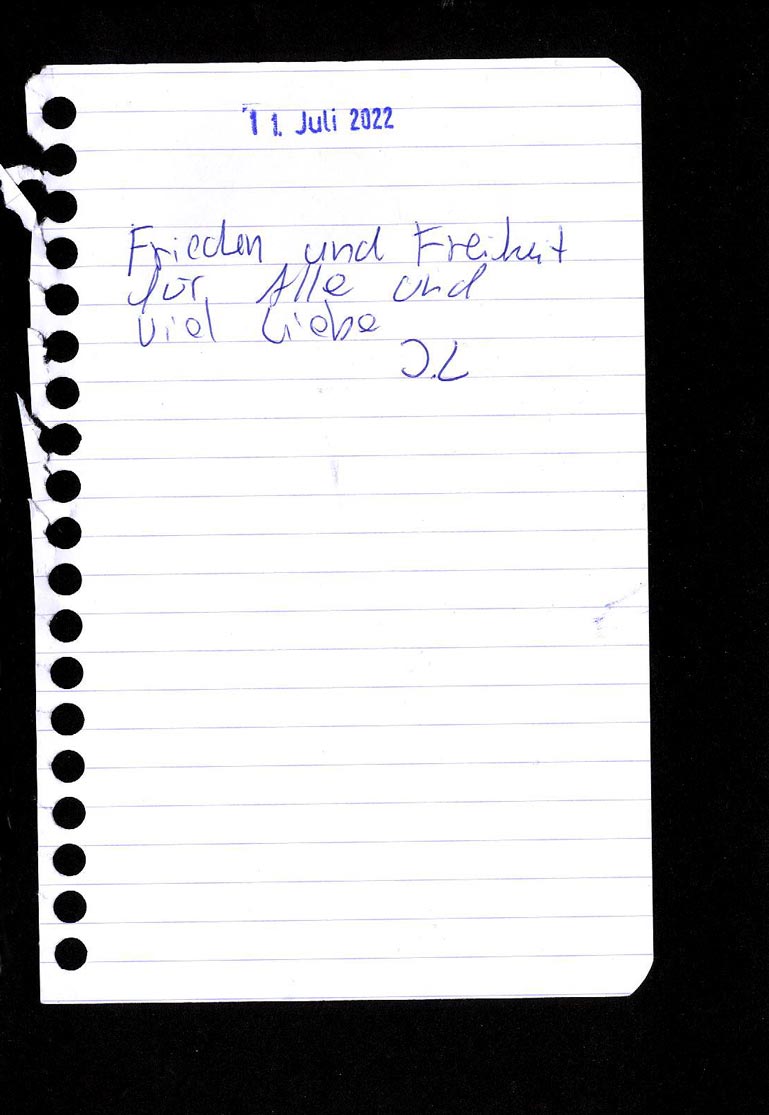 11. Juli 2022
Frieden und Freiheit
für Alle und
viel Liebe
J.L